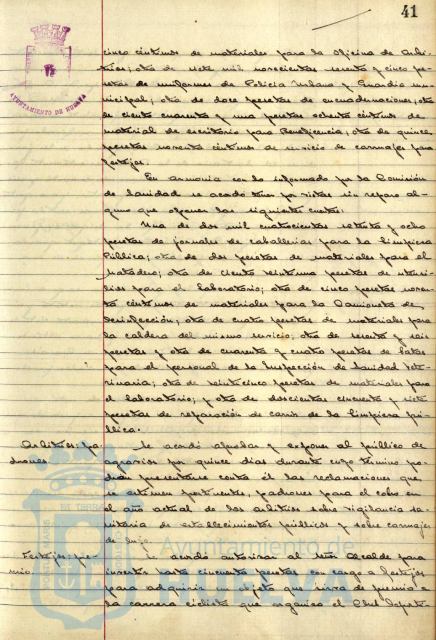 41
AYUNTAMIENTO DE HUELVA
cinco céntimos de materiales para la Oficina de Arbi-
trios; otra de siete mil novecientas sesenta y cinco pe-
setas de uniformes de Policía Urbana y Guardia mu-
nicipal; otra de doce pesetas de encuadernaciones, otra
de ciento cuarenta y una pesetas ochenta céntimos de
material de escritorio para Beneficencia; otra de quince
pesetas noventa céntimos de servicio de carruajes para
festejos.
En armonía con lo informado por la Comisión
de Sanidad se acordó tener por vistas sin reparo al-
guno que oponer las siguientes cuentas:
Una de dos mil cuatrocientas setenta y ocho
pesetas de jornales de caballerías para la limpieza
pública; otra de dos pesetas de materiales para el
Matadero; otra de ciento veintiuna pesetas de utensi-
lios para el laboratorio; otra de cinco pesetas noven-
ta céntimos de materiales para la Camioneta de
desinfección; otra de cuatro pesetas de materiales para
la caldera del mismo servicio; otra de sesenta y seis
pesetas y otra de cuarenta y cuatro pesetas de batas
para el personal de la Inspección de Sanidad Vete-
rinaria; otra de veinticinco pesetas de materiales para
el laboratorio; y otra de doscientas cincuenta y siete
pesetas de reparación de carros de la limpieza pú-
blica.
Arbitrios: pa-
drones
Se acordó aprobar y exponer al público de
agravios por quince días durante cuyo término po-
drán presentarse contra él las reclamaciones que
se estimen pertinentes, padrones para el cobro en
el año actual de los arbitrios sobre vigilancia sa-
nitaria de establecimientos públicos y sobre carruajes
de lujo.
Festejos: pre-
mio.
Se acordó autorizar al señor Alcalde para
invertir hasta cincuenta pesetas con cargo a festejos
para adquirir un objeto que sirva de premio a
la carrera ciclista que organiza el Club deporti-
Ayuntamiento de
HUELVA